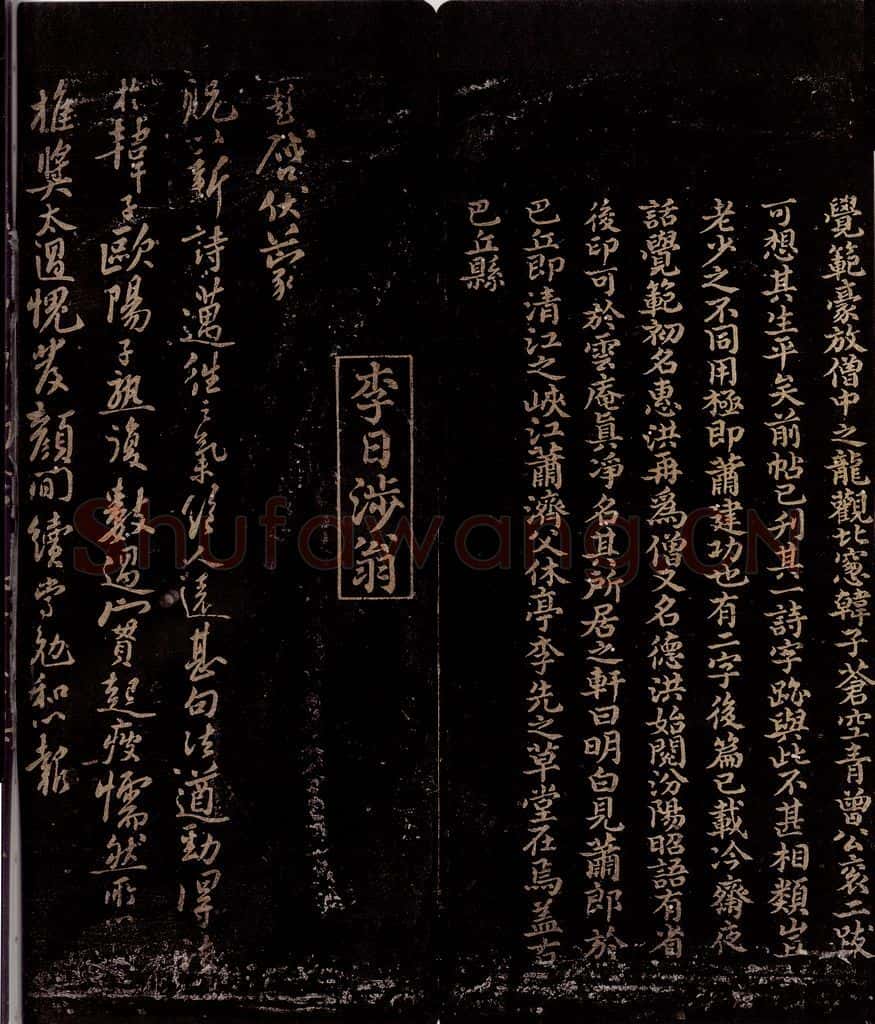 覺範豪放僧中之龍觀此憲韓子蒼空青曾公衮二跋
可想其生平矣前帖已刋其一詩字跡與此不甚相類豈
老少之不同用極即蕭建功也有二字後篇已載冷齋夜
話覺範初名惠洪再爲僧又名德洪始閱汾陽昭語有省
後印可於雲庵眞净名其所居之軒曰明白見蕭郎於
巴丘即清江之峽江蕭濟父休亭李先之草堂在焉盖古
巴丘縣
李日涉翁
彭啓伏蒙
貺以新詩邁往之氣作人遠甚句法遒勁得
於韓子歐陽子熟復數過
推奬太過愧發顏間續當勉和以報
Shufawang.CN